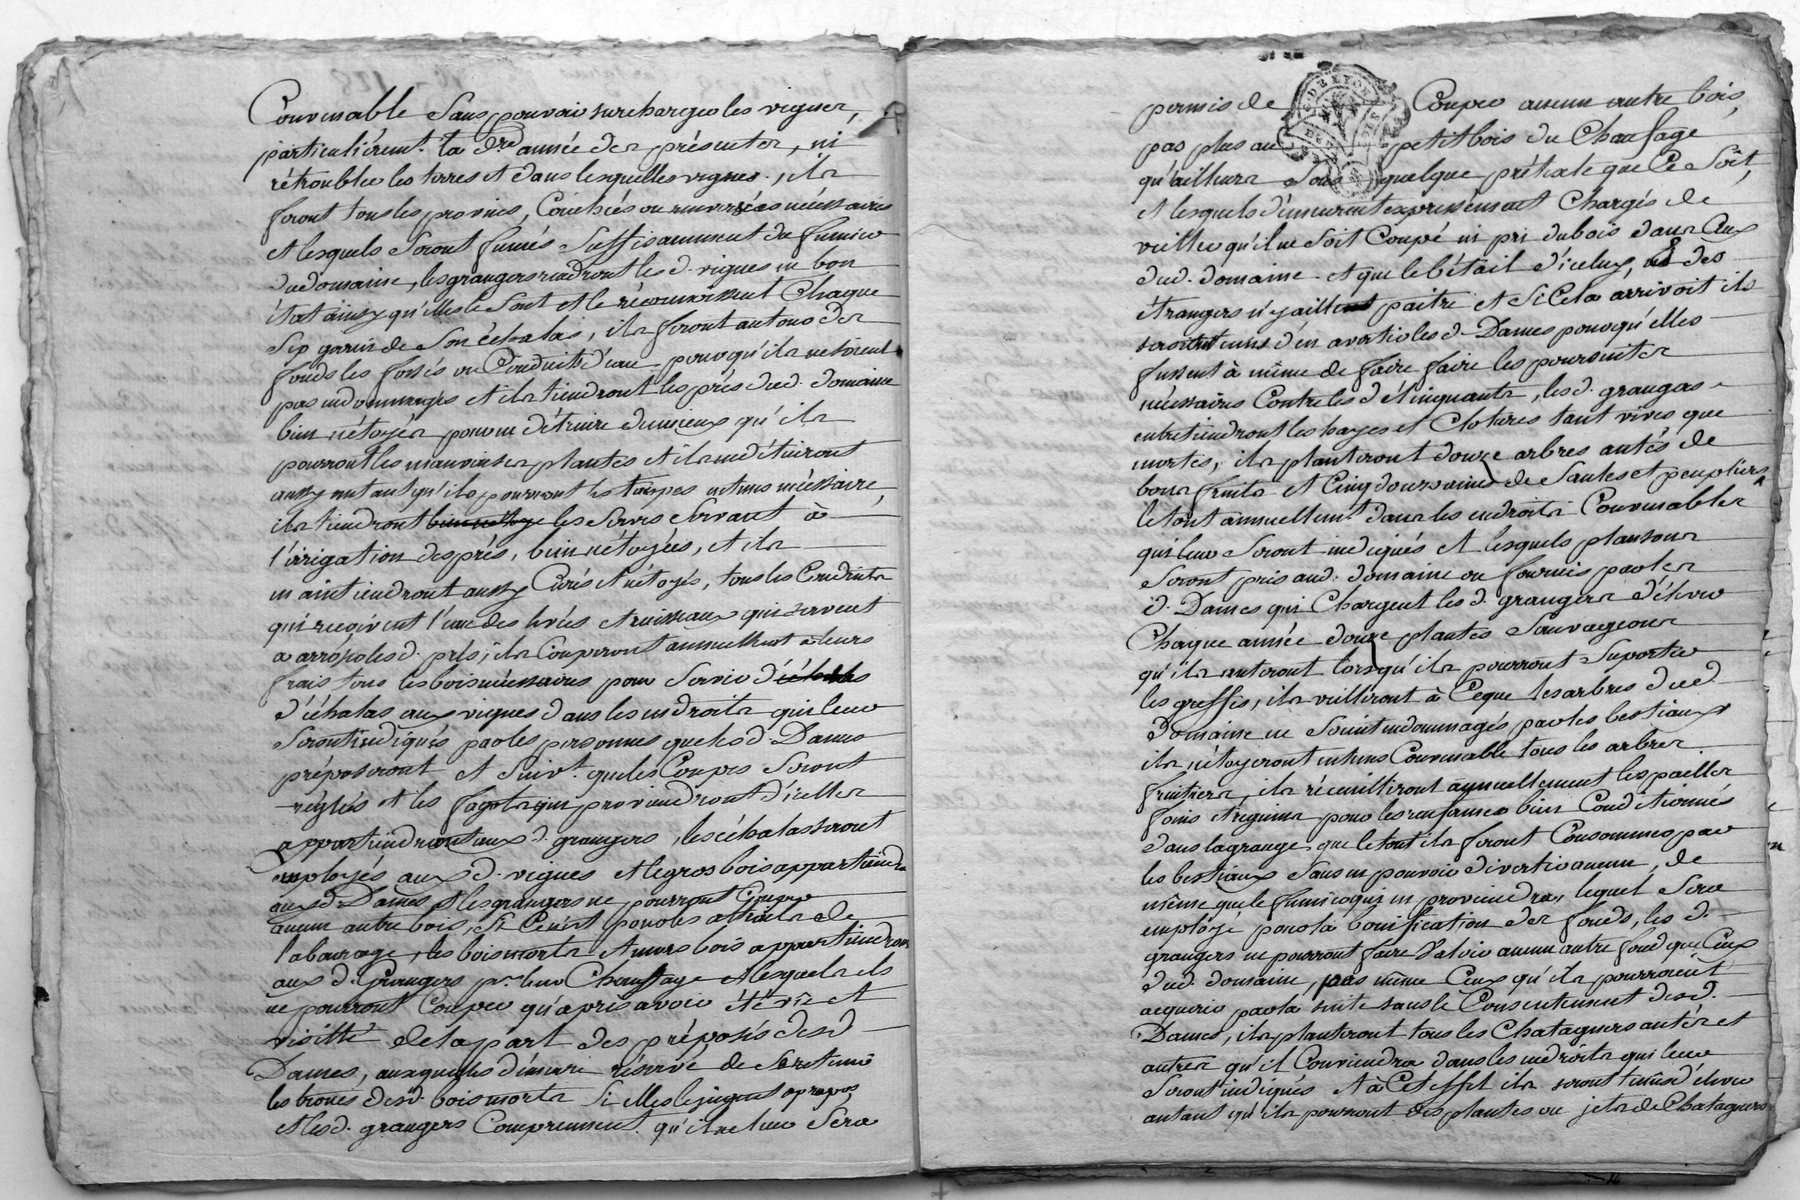 Convenable sans pouvoir surcharger les vignes,
particulièremt. la dre. année des présentes, ni
rétroubler les terres et dans lesquelles vignes, ils
feront tous les provins, Couchés ou renversées nécessaires
et lesquels seront fumés suffisamment du fumier
dud domaine, les grangers rendront les d. vignes en bon
état ainsy qu'elles le sont et le réconnoissent Chaque
sep garni de son échalas, ils feront autour des
fonds les fossés ou Conduits d'eau pour qu'ils ne soient
pas endommagés et ils tiendront les prés dud. domaine
bien nétoyés pour en détruire du mieux qu'ils
pourront les mauvaises plantes et ils en détruiront
aussy autant qu'ils pourront les taupes en tems nécéssaire,
ils tiendront les serves servant à
l'irrigation des prés, bien nétoyées, et ils
maintiendront aussy Curés et nétoyés, tous les Conduits
qui reçoivent l'eau des et ruisseaux qui servent
a arroser les d. prés, ils Couperont annuellement à leurs
frais tous les bois nécéssaires pour servir
d'échalas aux vignes dans les endroits qui leur
seront indiqués par les personnes que les d. Dames
préposeront et suivt. que les Coupes seront
réglées et les fagots qui proviendront d'icelles
appartiendront aux d grangers, les échalas seront
employés aux d. vignes et le gros bois appartiendra
aux d. Dames et les grangers ne pourront Couper
aucun autre bois, si Ce n'est pour les attraits de
l'abourage, les bois morts et murs bois appartiendront
aux d. Grangers pr. leur Chauffage et lesquels ils
ne pourront Couper qu'après avoir été vû et
visitté de la part des préposés desd
Dames, auxquelles démeure réservé de se retenir
les troncs desd. bois morts si elles le jugent apropos
et les d. grangers Comprennent qu'il ne leur sera
permis de Couper aucun autre bois,
pas plus au petit bois du Chaufage
qu'ailleurs sous quelque prétexte que Ce soit,
et lesquels démeurent expressément Chargés de
veiller qu'il ne soit Coupé ni pris du bois dans Ceux
dud. domaine et que le bétail d'iceluy, ni des
étrangers n'y aillent paitre et si Cela arrivoit ils
seroient tenus d'en avertir les d. Dames pour qu'elles
fussent à même de faire faire les poursuites
nécéssaires Contre les délinquants, les d. grangers
entretiendront les hayes et Clotures tant vives que
mortes, ils planteront douze arbres antés de
bons fruits et Cinq douzaines de saules et peupliers
le tout annuellemt. dans les endroits Convenables
qui leur seront indiqués et lesquels plansons
seront pris aud. domaine ou fournis par les
d. Dames qui Chargent les d. grangers d'élever
Chaque année douze plantes sauvageons
qu'ils enteront lorsqu'ils pourront suporter
les greffes, ils veilleront à Ce que les arbres dud
domaine ne soient endommagés par les bestiaux
ils nétoyeront en tems Convenable tous les arbres
fruitiers, ils récueilliront annuellement les pailles
foins et reguins pour les renfermer bien Conditionnés
dans la grange, que le tout ils feront Consommer par
les bestiaux sans en pouvoir divertir aucun, de
même que le fumier qui en proviendra, lequel sera
employé pour la bonification des fonds, les d.
grangers ne pourront faire valoir aucun autre fond que Ceux
dud. domaine, pas même Ceux qu'ils pourroient
acquerir par la suite sans le Consentement desd.
Dames, ils planteront tous les Chataigners antés et
autres qu'il Conviendra dans les endroits qui leur
seront indiqués et à Cet effet ils seront tenus d'élever
autant qu'ils pourront des plantes ou jets de Chataigners